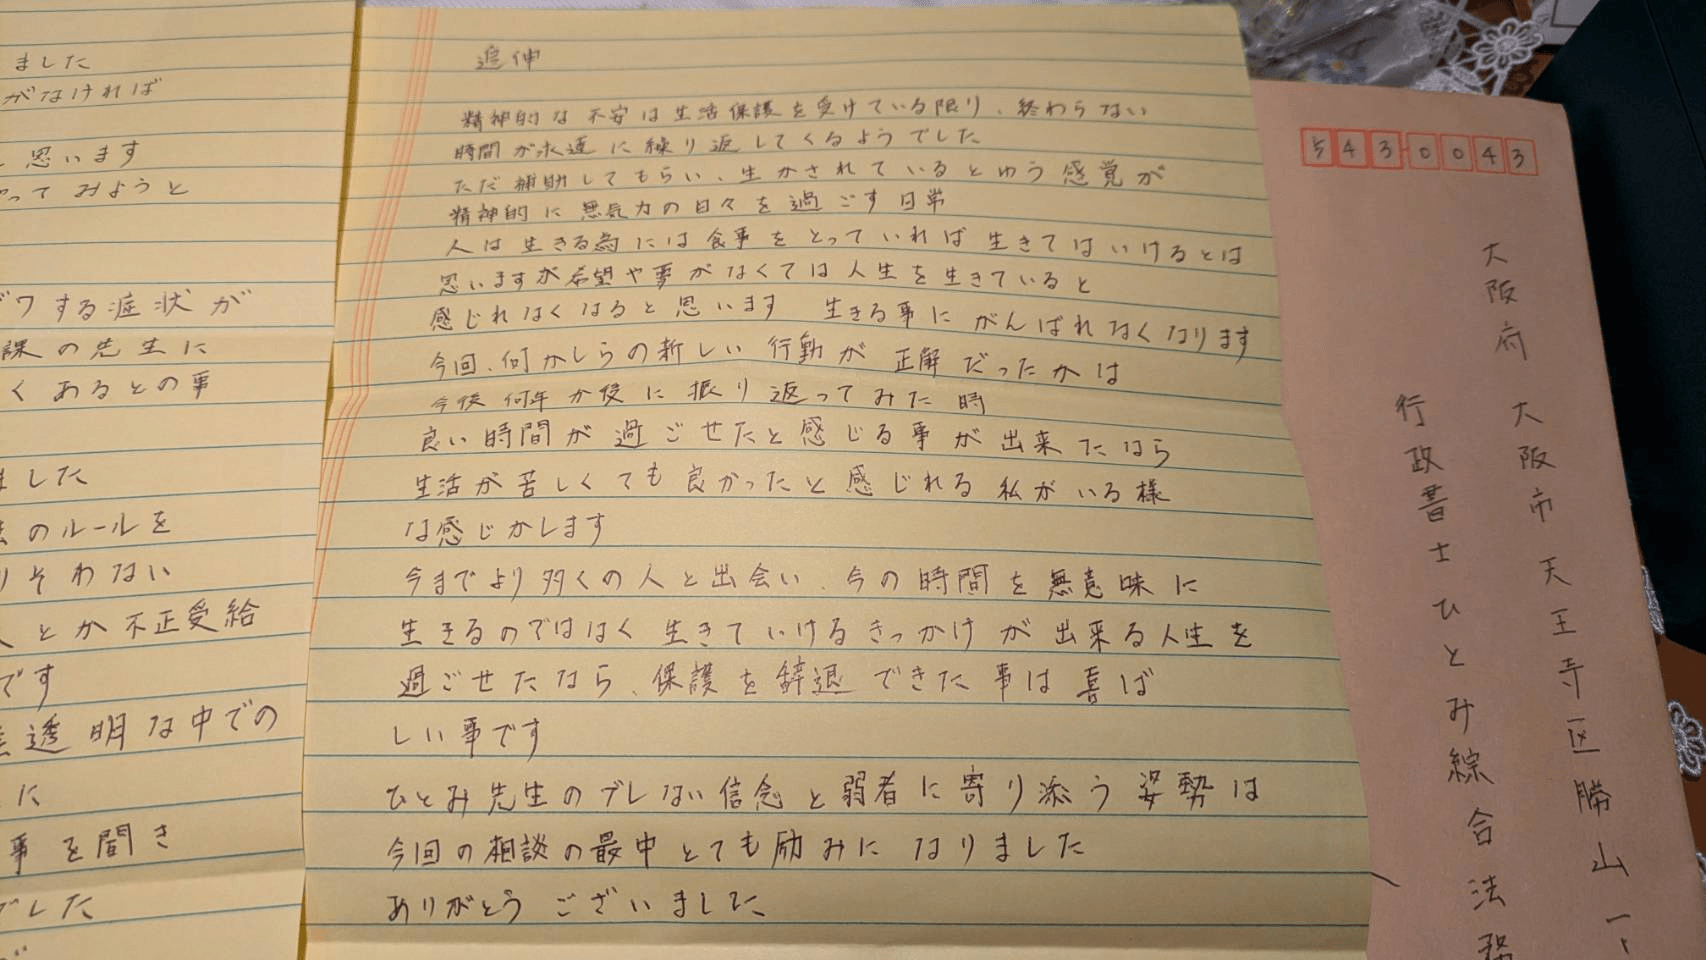 ました
がなければ
思います
ってみようと
ワする症状が
課の先生に
くあるとの事
ました
のルールを
りそわない
とか不正受給
です
透明な中での
に
事を聞き
でした
追伸
精神的な不安は生活保護を受けている限り、終わらない
時間が永遠に繰り返してくるようでした
ただ補助してもらい、生かされているとゆう感覚が
精神的に無気力の日々を過ごす日常
人は生きる為には食事をとっていれば生きてはいけるとは
思いますが希望や夢がなくては人生を生きていると
感じれなくなると思います 生きる事にがんばれなくなります
今回、何かしらの新しい行動が正解だったかは
今後何年か後に振り返ってみた時
良い時間が過ごせたと感じる事が出来たなら
生活が苦しくても良かったと感じれる私がいる様
な感じがします
今までより多くの人と出会い、今の時間を無意味に
生きるのではなく生きていけるきっかけが出来る人生を
過ごせたなら、保護を辞退できた事は喜ば
しい事です
ひとみ先生のブレない信念と弱者に寄り添う姿勢は
今回の相談の最中とても励みになりました
ありがとうございました
543-0043
大阪府大阪市天王寺区勝山一丁
行政書士ひとみ綜合法務